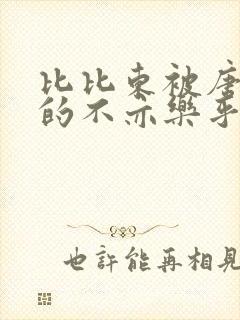 比比东被唐
的不亦乐乎
也許能再相見